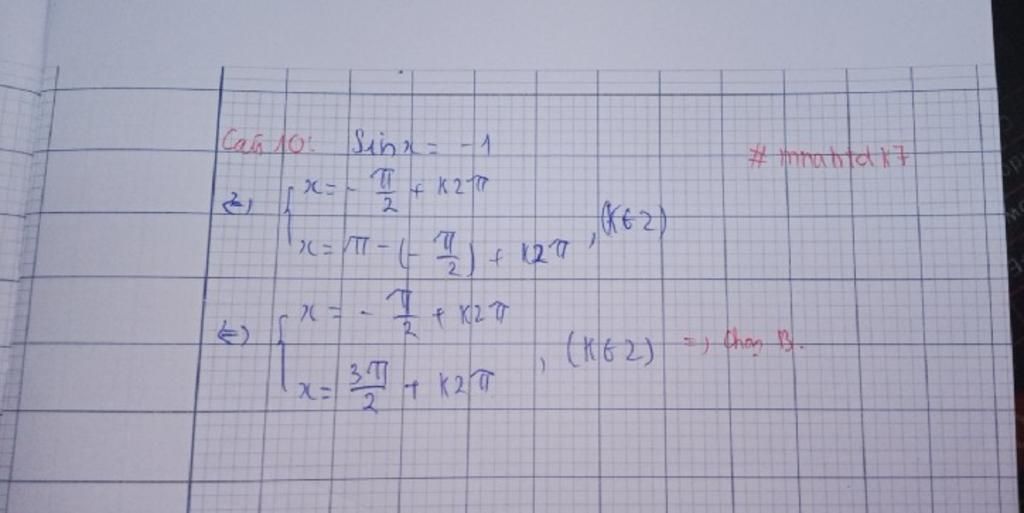 Câu 10: Sinx = -1
# mnahtdk7
⇔ { x = - π/2 + k2π
x = π - (- π/2) + k2π , (k ∈ Z)
⇔ { x = - π/2 + k2π
x = 3π/2 + k2π , (k ∈ Z) => Chọn B.